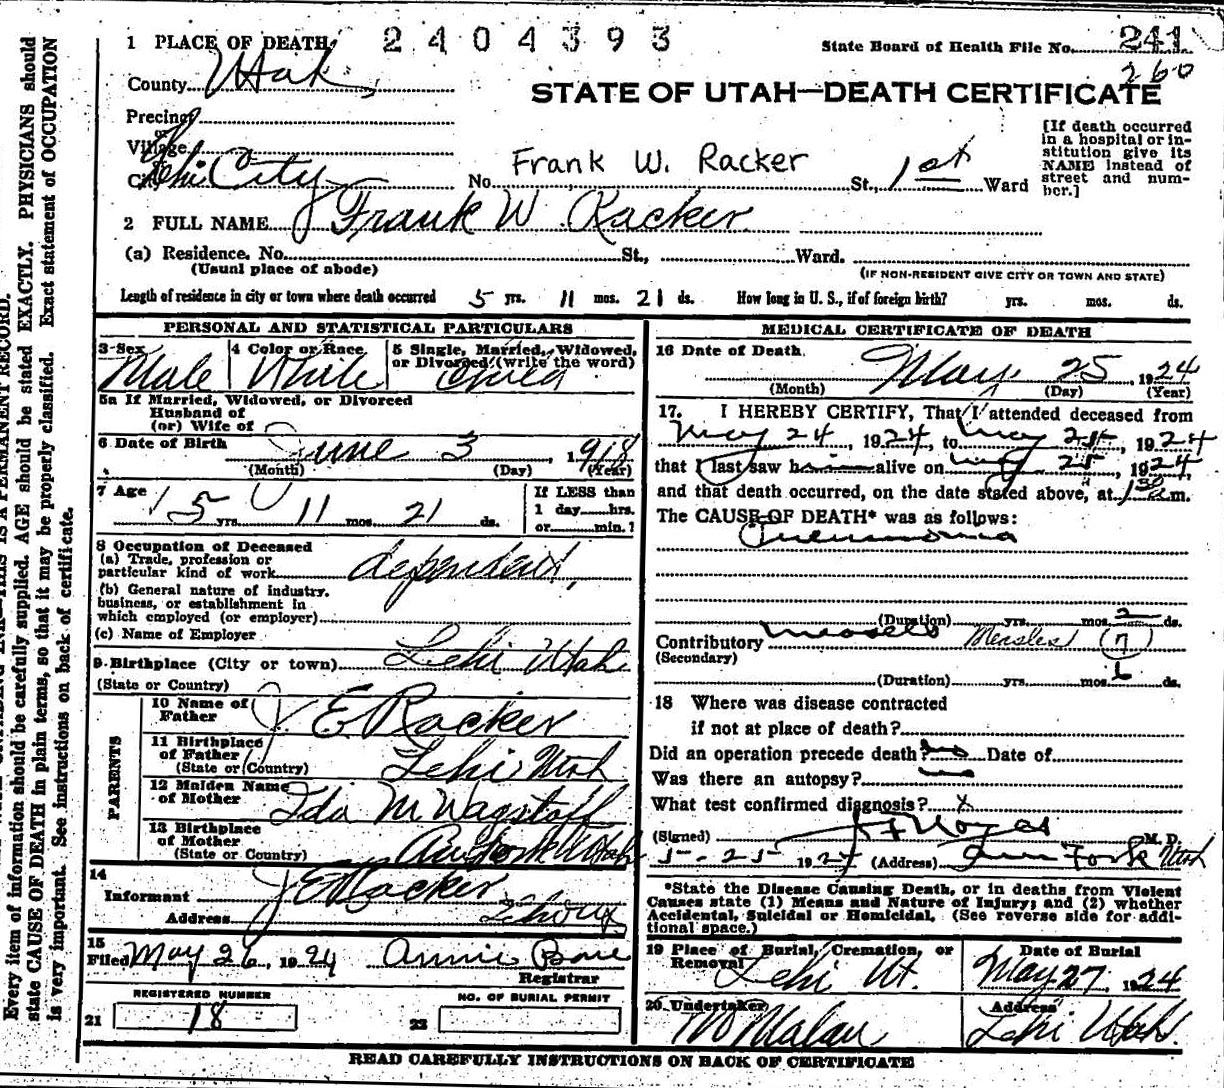 1 PLACE OF DEATH 2404393 State Board of Health File No. 241
260
County Utah,
STATE OF UTAH—DEATH CERTIFICATE
Precinct
or
Village
or
City Lehi City No. Frank W. Racker St., 1st Ward
[If death occurred in a hospital or institution give its NAME instead of street and number.]
2 FULL NAME Frank W Racker.
(a) Residence. No. St., Ward.
(Usual place of abode) (IF NON-RESIDENT GIVE CITY OR TOWN AND STATE)
Length of residence in city or town where death occurred 5 yrs. 11 mos. 21 ds. How long in U. S., if of foreign birth? yrs. mos. ds.
PERSONAL AND STATISTICAL PARTICULARS
3 Sex 4 Color or Race 5 Single, Married, Widowed, or Divorced (write the word)
Male White Child
5a If Married, Widowed, or Divorced
Husband of
(or) Wife of
6 Date of Birth June 3 1918
(Month) (Day) (Year)
7 Age 5 yrs. 11 mos. 21 ds.
If LESS than
1 day hrs.
or min.?
8 Occupation of Deceased
(a) Trade, profession or
particular kind of work dependent,
(b) General nature of industry.
business, or establishment in
which employed (or employer)
(c) Name of Employer
9 Birthplace (City or town) Lehi Utah
(State or Country)
PARENTS
10 Name of
Father J E Racker
11 Birthplace
of Father Lehi Utah
(State or Country)
12 Maiden Name
of Mother Ida M Wagstaff
13 Birthplace
of Mother Am Fork Utah
(State or Country)
14
Informant J E Racker
Address Lehi
15
Filed May 26, 1924 Annie Bone
Registrar
REGISTERED NUMBER NO. OF BURIAL PERMIT
21 18 22
MEDICAL CERTIFICATE OF DEATH
16 Date of Death May 25, 1924
(Month) (Day) (Year)
17. I HEREBY CERTIFY, That I attended deceased from
May 24, 1924, to May 25, 1924
that I last saw him alive on May 25, 1924,
and that death occurred, on the date stated above, at 1 30 a.m.
The CAUSE OF DEATH* was as follows:
Pneumonia
(Duration) yrs. mos. 2 ds.
Contributory Measels Measles (7)
(Secondary)
(Duration) yrs. mos. 6 ds.
18 Where was disease contracted
if not at place of death?
Did an operation precede death? no Date of
Was there an autopsy? no
What test confirmed diagnosis? x
(Signed) Noyes M. D.
5-25-1924 (Address) Am Fork Utah
*State the Disease Causing Death, or in deaths from Violent
Causes state (1) Means and Nature of Injury; and (2) whether
Accidental, Suicidal or Homicidal. (See reverse side for addi-
tional space.)
19 Place of Burial, Cremation, or
Removal Lehi Ut.
Date of Burial
May 27, 1924
20 Undertaker
Malan
Address
Lehi Utah.
READ CAREFULLY INSTRUCTIONS ON BACK OF CERTIFICATE
THIS IS A PERMANENT RECORD.
Every item of information should be carefully supplied. AGE should be stated EXACTLY. PHYSICIANS should
state CAUSE OF DEATH in plain terms, so that it may be properly classified. Exact statement of OCCUPATION
is very important. See instructions on back of certificate.